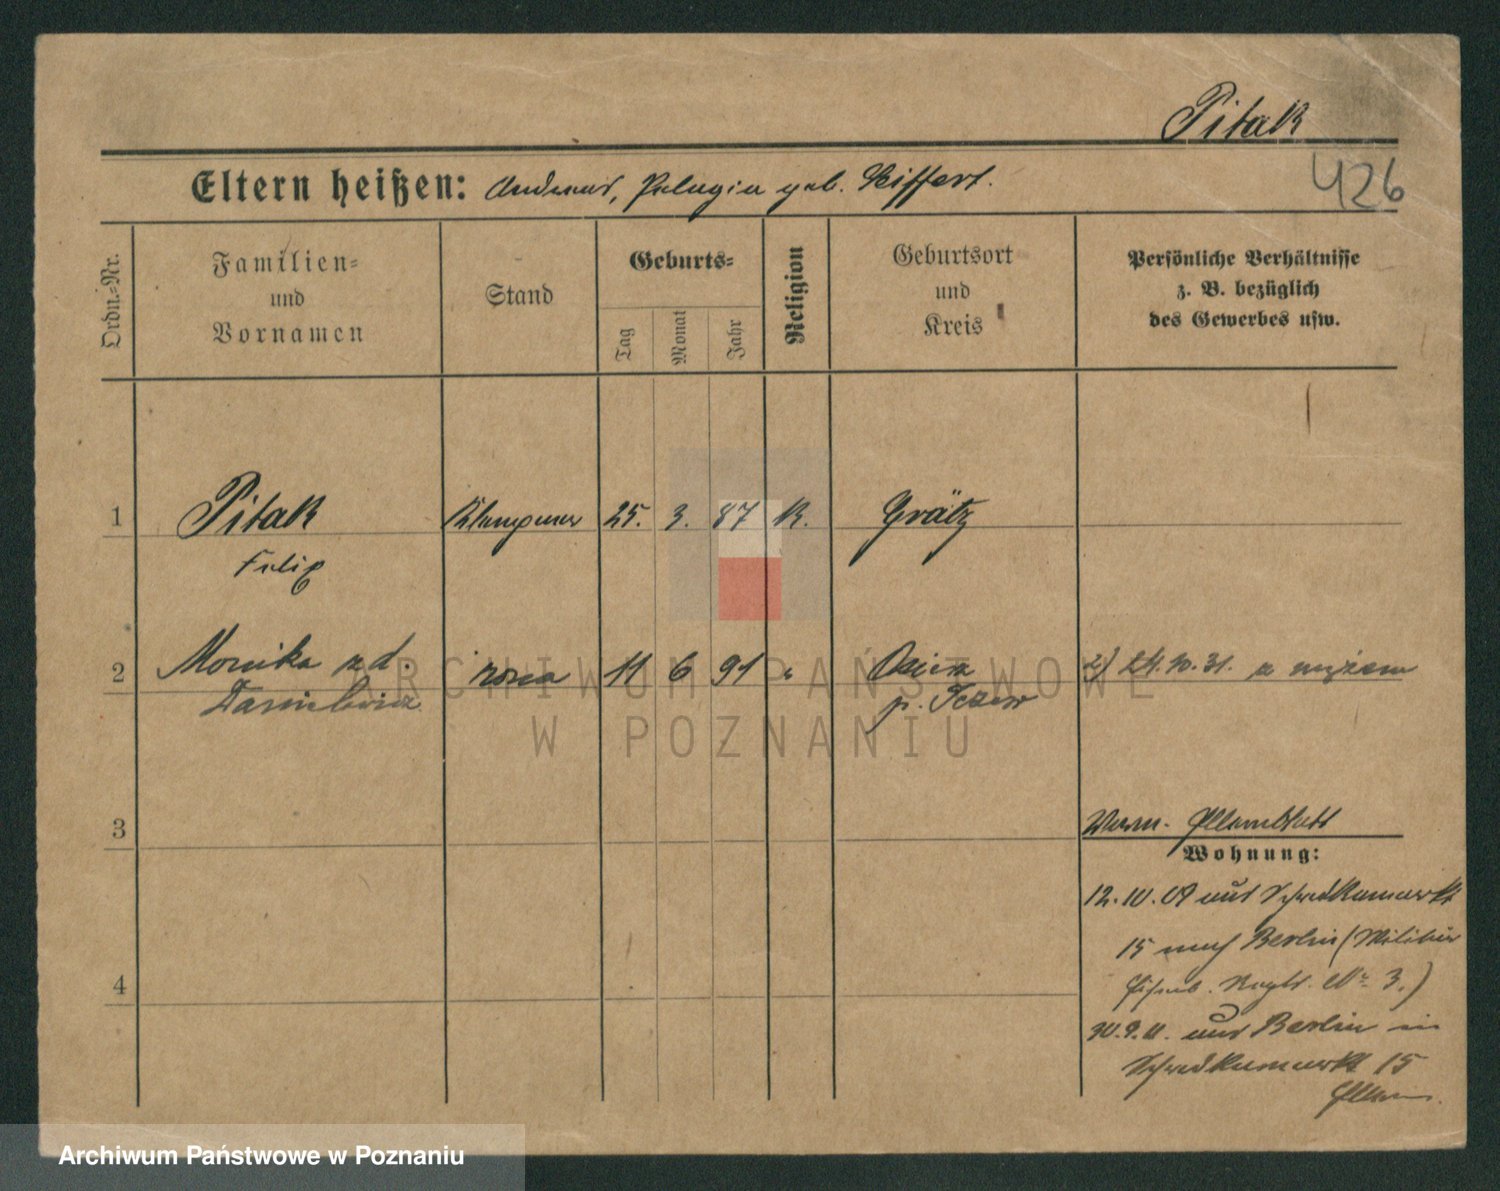 Pitak
426
Eltern heißen: Andreas, Pelagia geb. Seiffert.
Ordn.-Nr.
Familien-
und
Vornamen
Stand
Geburts-
Tag
Monat
Jahr
Religion
Geburtsort
und
Kreis
Persönliche Verhältnisse
z. B. bezüglich
des Gewerbes usw.
1 Pitak Klempner 25. 3. 87 K. Grätz
Felix
2 Monika zd. żona 11 6 91 " 2) 24.10.31. z mężem
p. Tczew
ARCHIWUM PAŃSTWOWE
W POZNANIU
3
Wohnung:
12.10.09 aus Schrodkamarkt
15 nach Berlin (Militär
Eisenb. Regt. No 3.)
30.9.11. aus Berlin in
Schrodkamarkt 15
Eltern.
4
Archiwum Państwowe w Poznaniu